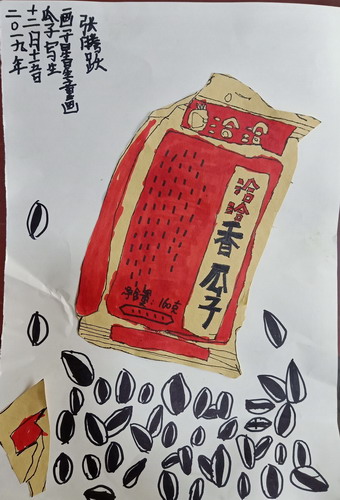 张腾跃
画于星星童画
瓜子写生
十二月十五日
二〇一九年
洽洽
洽洽
香瓜子
160克